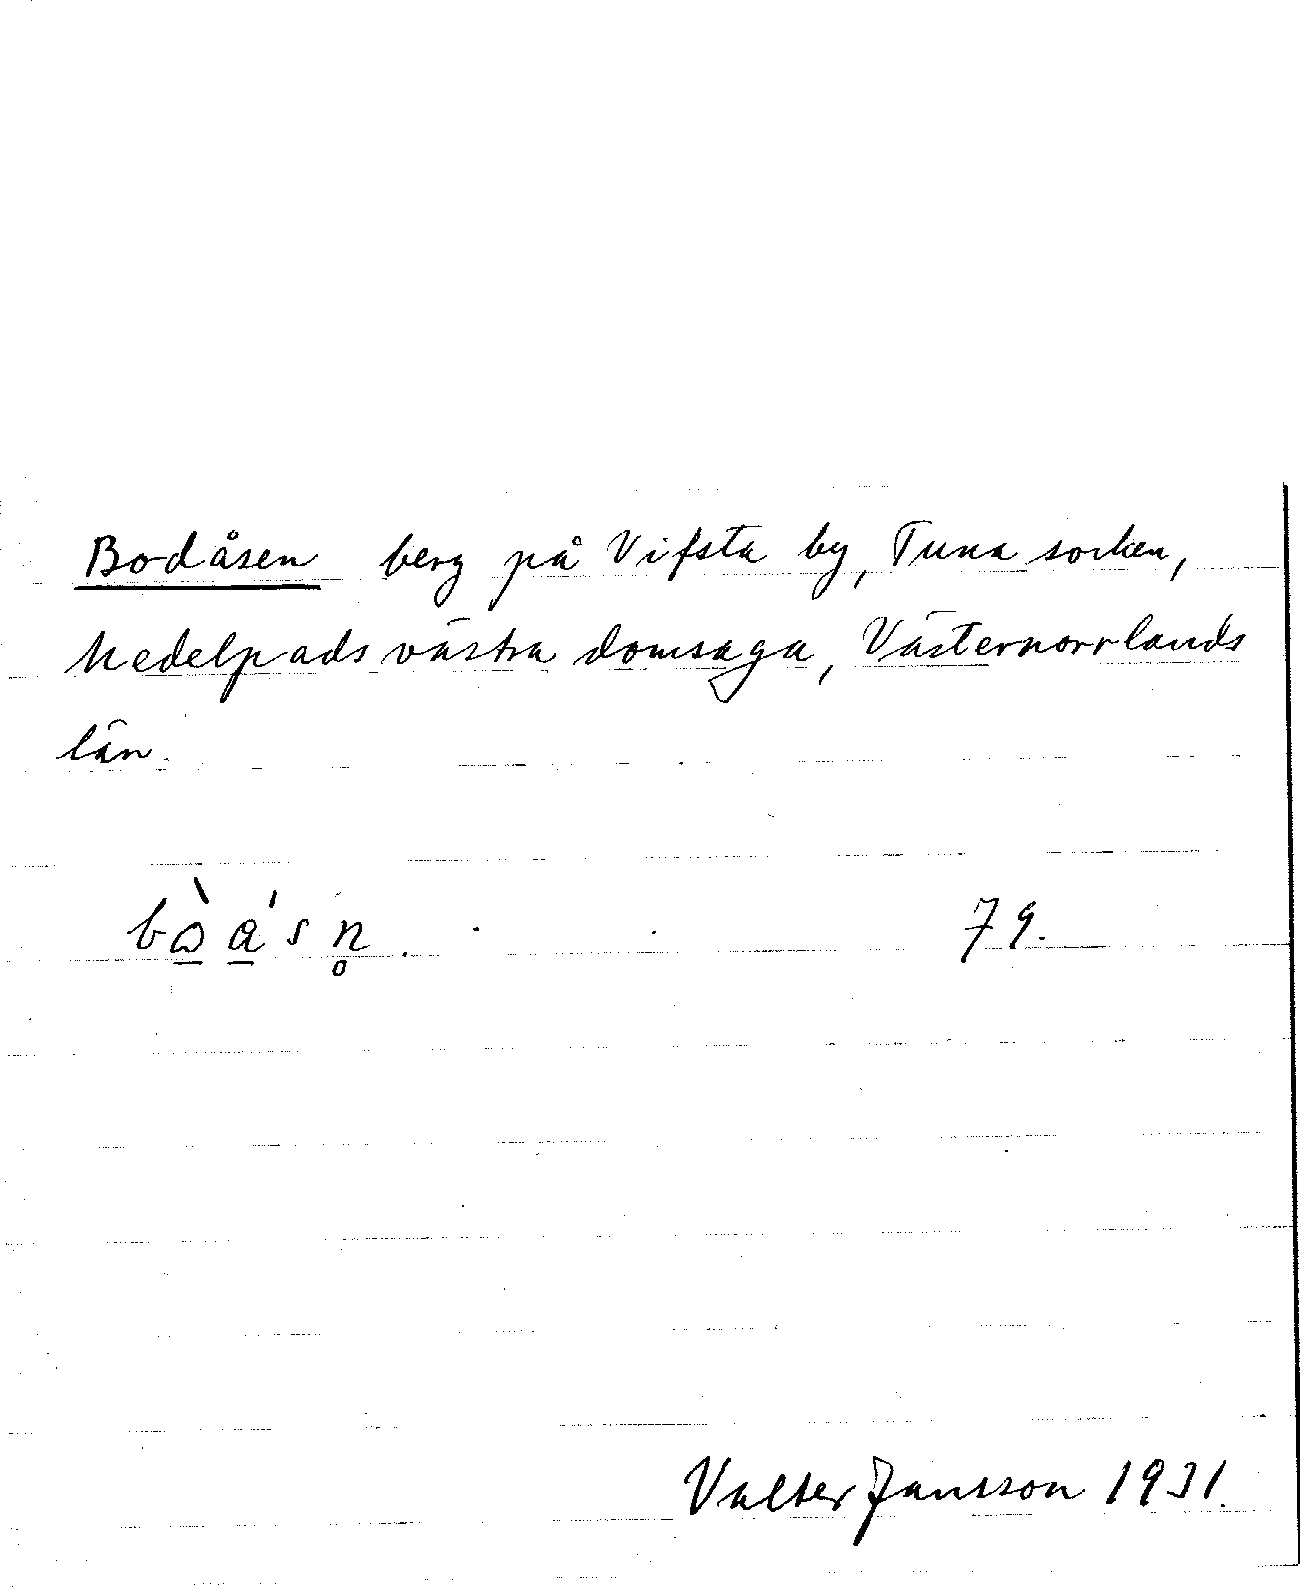 Bodåsen berg på Vifsta by, Tuna socken,
Medelpads västra domsaga, Västernorrlands
län.
79.
Valter Jansson 1931.